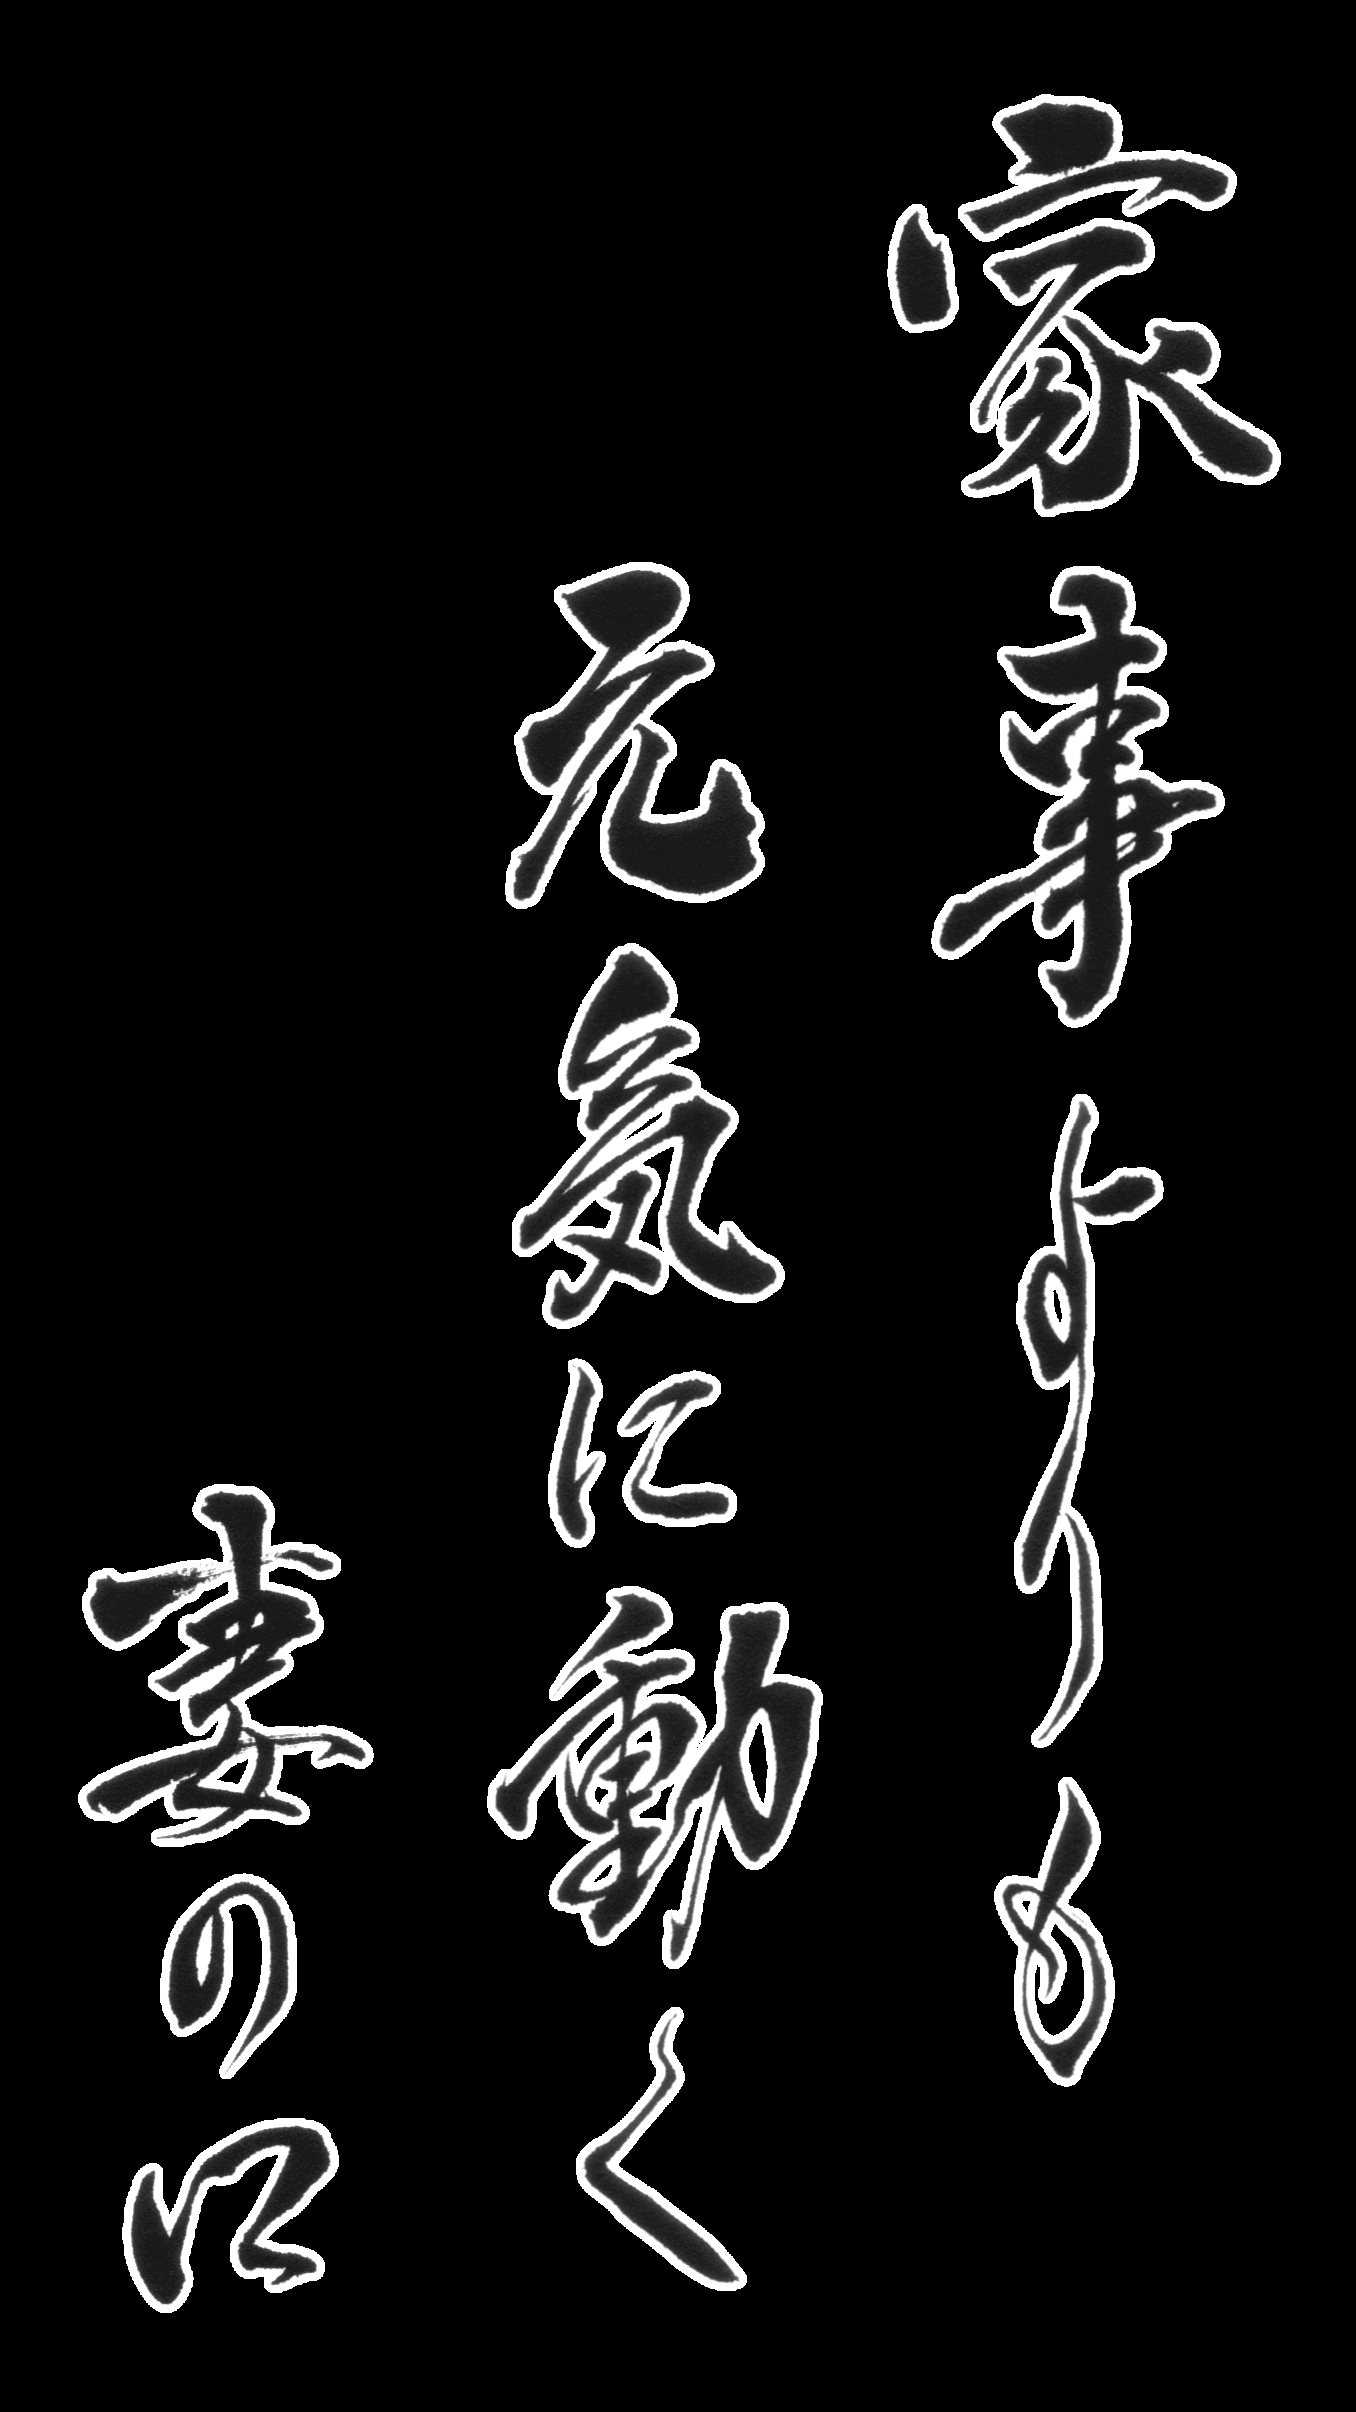 家事よりも
元気に動く
妻の口